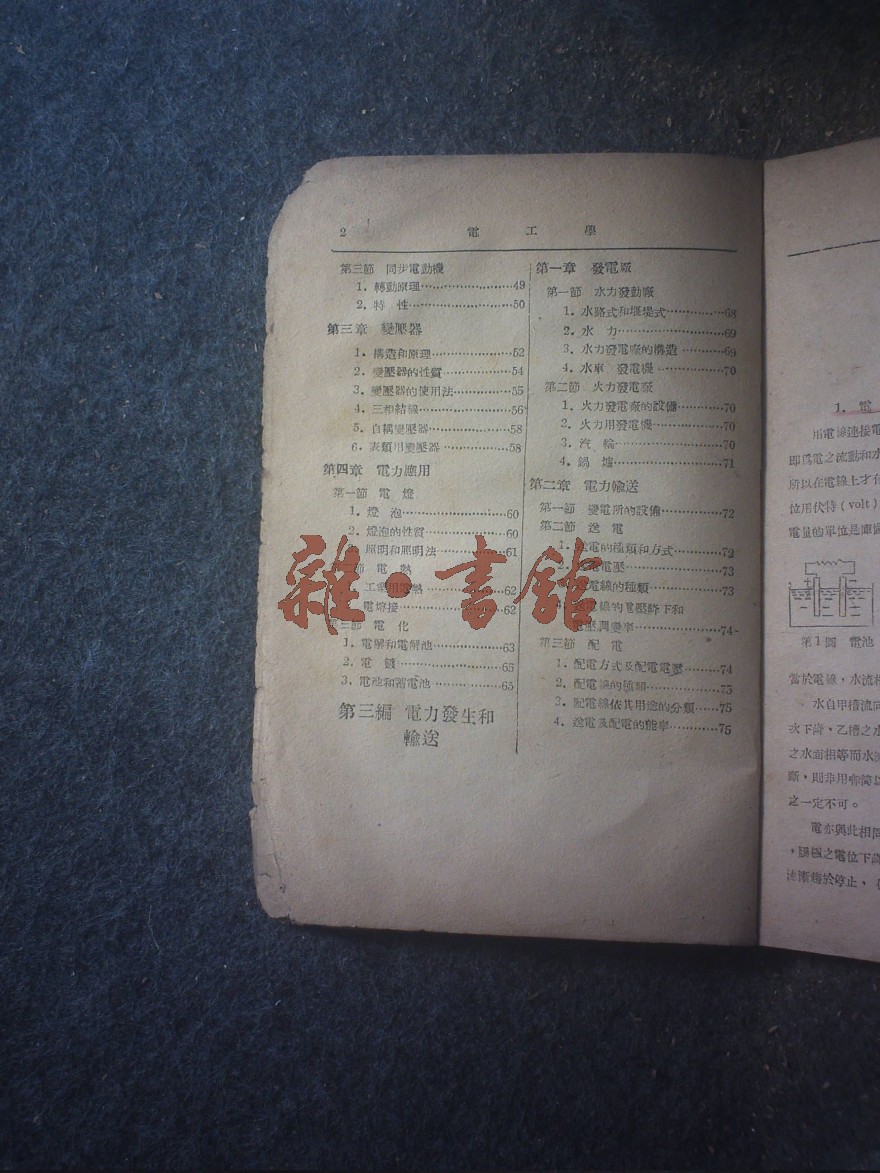 2 電工學
第三節 同步電動機
1. 轉動原理……49
2. 特 性……50
第三章 變壓器
1. 構造和原理……52
2. 變壓器的性質……54
3. 變壓器的使用法……55
4. 三相結線……56
5. 自耦變壓器……58
6. 表類用變壓器……58
第四章 電力應用
第一節 電 燈
1. 燈 泡……60
2. 燈泡的性質……60
照明和照明法……61
節 電 熱
工業用電熱……62
電熔接……62
第三節 電 化
1. 電解和電解池……63
2. 電 鍍……65
3. 電池和蓄電池……65
第三編 電力發生和
輸送
第一章 發電廠
第一節 水力發動廠
1. 水路式和堰堤式……68
2. 水 力……69
3. 水力發電廠的構造……69
4. 水車 發電機……70
第二節 火力發電廠
1. 火力發電廠的設備……70
2. 火力用發電機……70
3. 汽 輪……70
4. 鍋 爐……71
第二章 電力輸送
第一節 變電所的設備……72
第二節 送 電
1. 送電的種類和方式……72
2. 送電電壓……73
送電線的種類……73
4. 送電線的電壓降下和
電壓調變率……74
第三節 配 電
1. 配電方式及配電電壓……74
2. 配電線的種類……75
3. 配電線依其用途的分類……75
4. 送電及配電的能率……75
雜·書館
1. 電
用電線連接電
即爲電之流動和水
所以在電線上才有
位用伏特(volt)
電量的單位是庫
第1圖 電池
當於電線，水流相
水自甲槽流向
次下降，乙槽之水
之水面相等而水流
斷，則非用唧筒以
之一定不可。
電亦與此相同
，陽極之電位下降
流漸趨於停止，